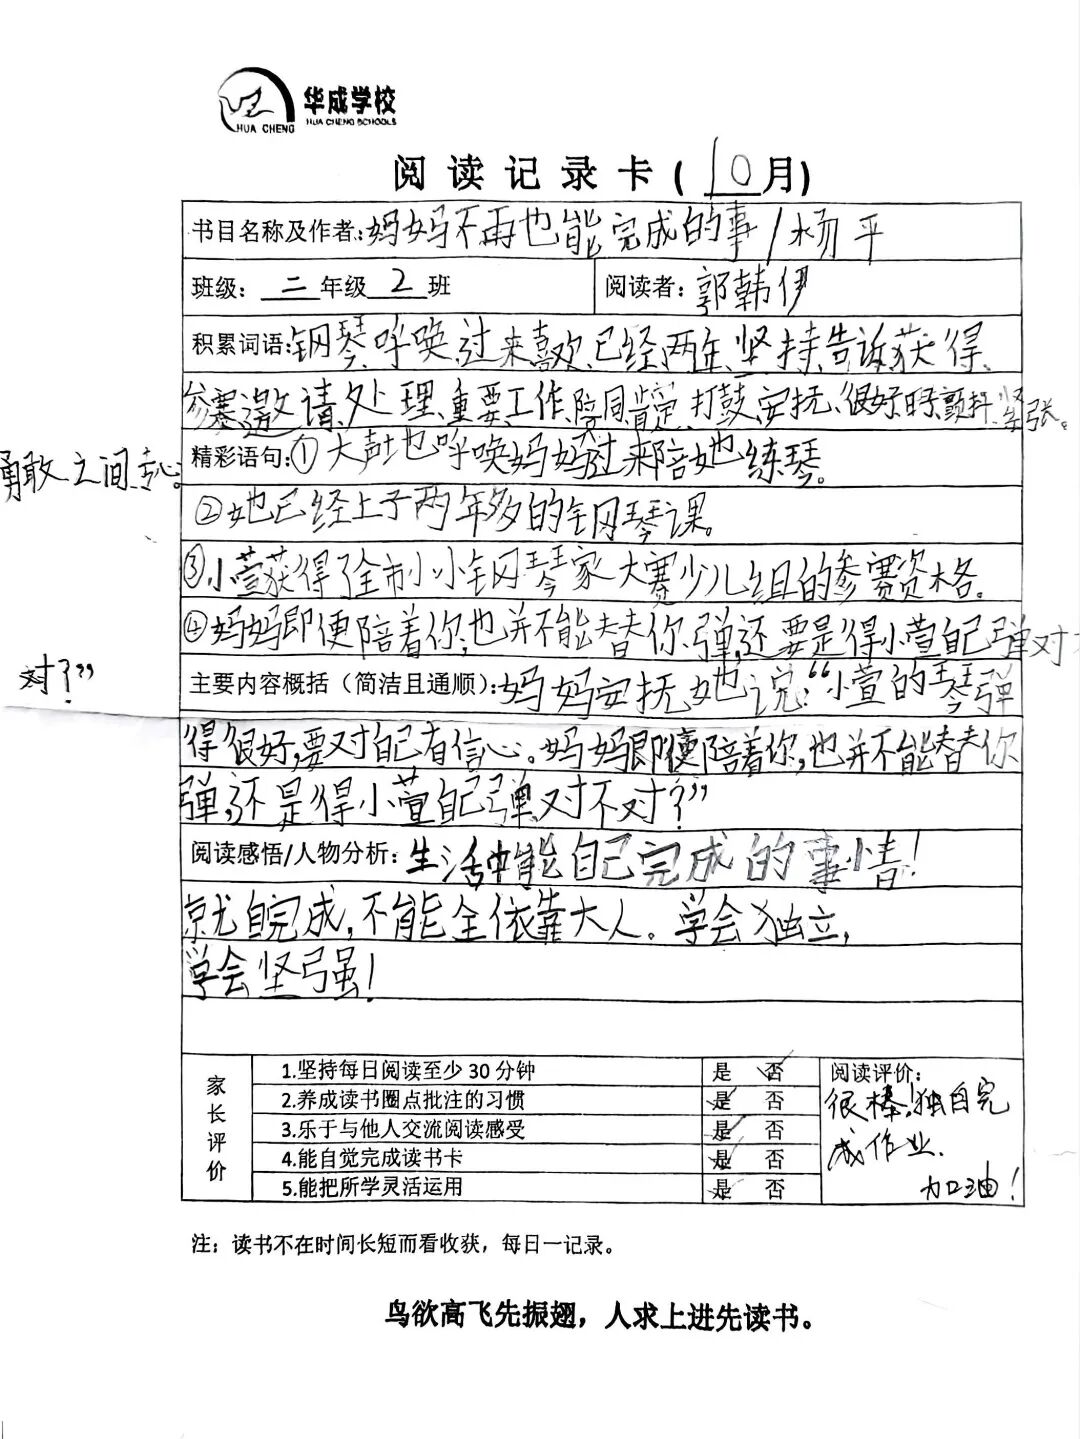 华成学校
HUA CHENG SCHOOLS
HUA CHENG
阅读记录卡(10月)
书目名称及作者:妈妈不再也能完成的事/杨平
班级:二年级2班 阅读者:郭韩伊
积累词语:钢琴、呼唤、过来、喜欢、已经、两年、坚持、告诉、获得、
参赛、邀请、处理、重要、工作、陪同、肯定、打鼓、安抚、很好听、颤抖、紧张。
勇敢、之间、专心。
精彩语句:①大声地呼唤妈妈过来陪她练琴。
②她已经上了两年多的钢琴课。
③小萱获得了全市小小钢琴家大赛少儿组的参赛资格。
④妈妈即便陪着你,也并不能替你弹,还要是得小萱自己弹对不
对?”
主要内容概括(简洁且通顺):妈妈安抚她说:“小萱的琴弹
得很好,要对自己有信心。妈妈即便陪着你,也并不能替你
弹,还是得小萱自己弹,对不对?”
阅读感悟/人物分析:生活中能自己完成的事情!
就自完成,不能全依靠大人。学会独立,
学会坚强!
家长评价
1.坚持每日阅读至少30分钟 是 否
2.养成读书圈点批注的习惯 是 否
3.乐于与他人交流阅读感受 是 否
4.能自觉完成读书卡 是 否
5.能把所学灵活运用 是 否
阅读评价:
很棒!独自完
成作业.
加油!
注:读书不在时间长短而看收获,每日一记录。
鸟欲高飞先振翅,人求上进先读书。